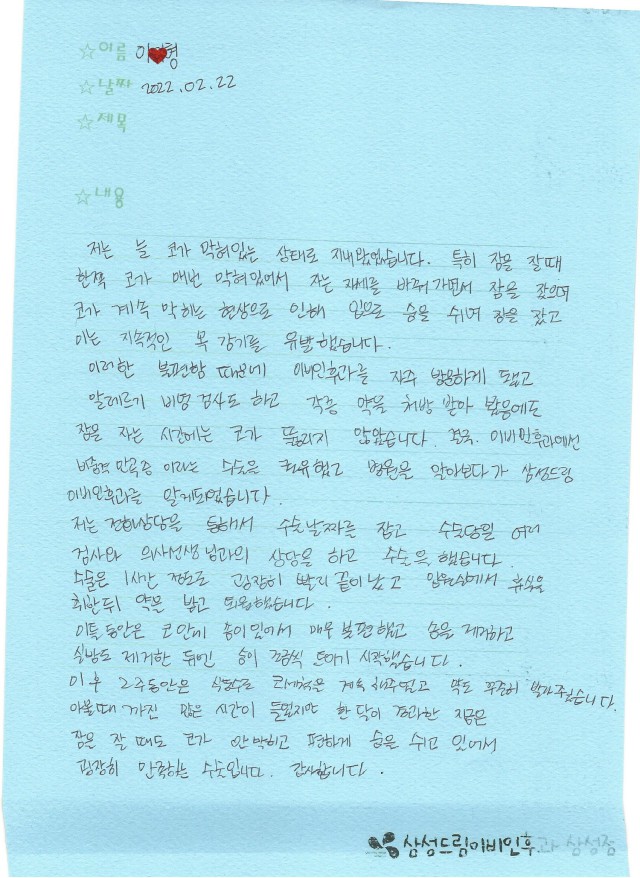 ☆이름 이♥형
☆날짜 2022.02.22
☆제목
☆내용
저는 늘 코가 막혀있는 상태로 지내왔었습니다. 특히 잠을 잘때
한쪽 코가 매번 막혀있어서 자는 자세를 바꿔가면서 잠을 잤으며
코가 계속 막히는 현상으로 인해 입으로 숨을 쉬며 잠을 잤고
이는 지속적인 목 감기를 유발했습니다.
이러한 불편함 때문에 이비인후과를 자주 방문하게 됐고
알레르기 비염 검사도 하고 각종 약을 처방 받아 봤음에도
잠을 자는 시간에는 코가 뚫리지 않았습니다. 결국 이비인후과에선
비중격 만곡증 이라는 수술을 권유했고 병원을 알아보다가 삼성드림
이비인후과를 알게되었습니다.
저는 전화상담을 통해서 수술날짜를 잡고 수술당일 여러
검사와 의사선생님과의 상담을 하고 수술을 했습니다.
수술은 1시간 정도로 굉장히 빨리 끝이 났고 입원실에서 휴식을
취한뒤 약을 받고 퇴원했습니다.
이틀동안은 코안에 솜이 있어서 매우 불편했고 솜을 제거하고
실밥도 제거한 뒤엔 숨이 조금씩 쉬어지기 시작했습니다.
이후 2주동안은 식염수로 코세척을 계속 해주었고 약도 꾸준히 발라주었습니다.
아물때 까진 많은 시간이 들었지만 한달이 경과한 지금은
잠을 잘 때도 코가 안 막히고 편하게 숨을 쉬고 있어서
굉장히 만족하는 수술입니다. 감사합니다.
삼성드림이비인후과 삼성점